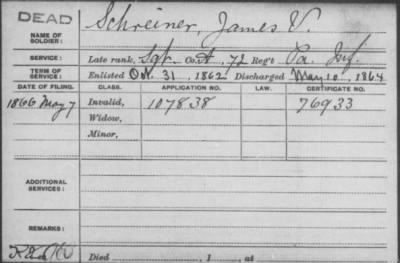 DEAD
NAME OF SOLDIER: Schreiner, James V.
SERVICE: Late rank, Sgt. Co. A, 72 Reg't Pa. Inf.
TERM OF SERVICE: Enlisted Oct. 31, 1862 Discharged May 10, 1864
DATE OF FILING. CLASS. APPLICATION NO. LAW. CERTIFICATE NO.
1866 May 7 Invalid, 107838 76933
Widow,
Minor,
ADDITIONAL SERVICES:
REMARKS:
Died , 1 , at